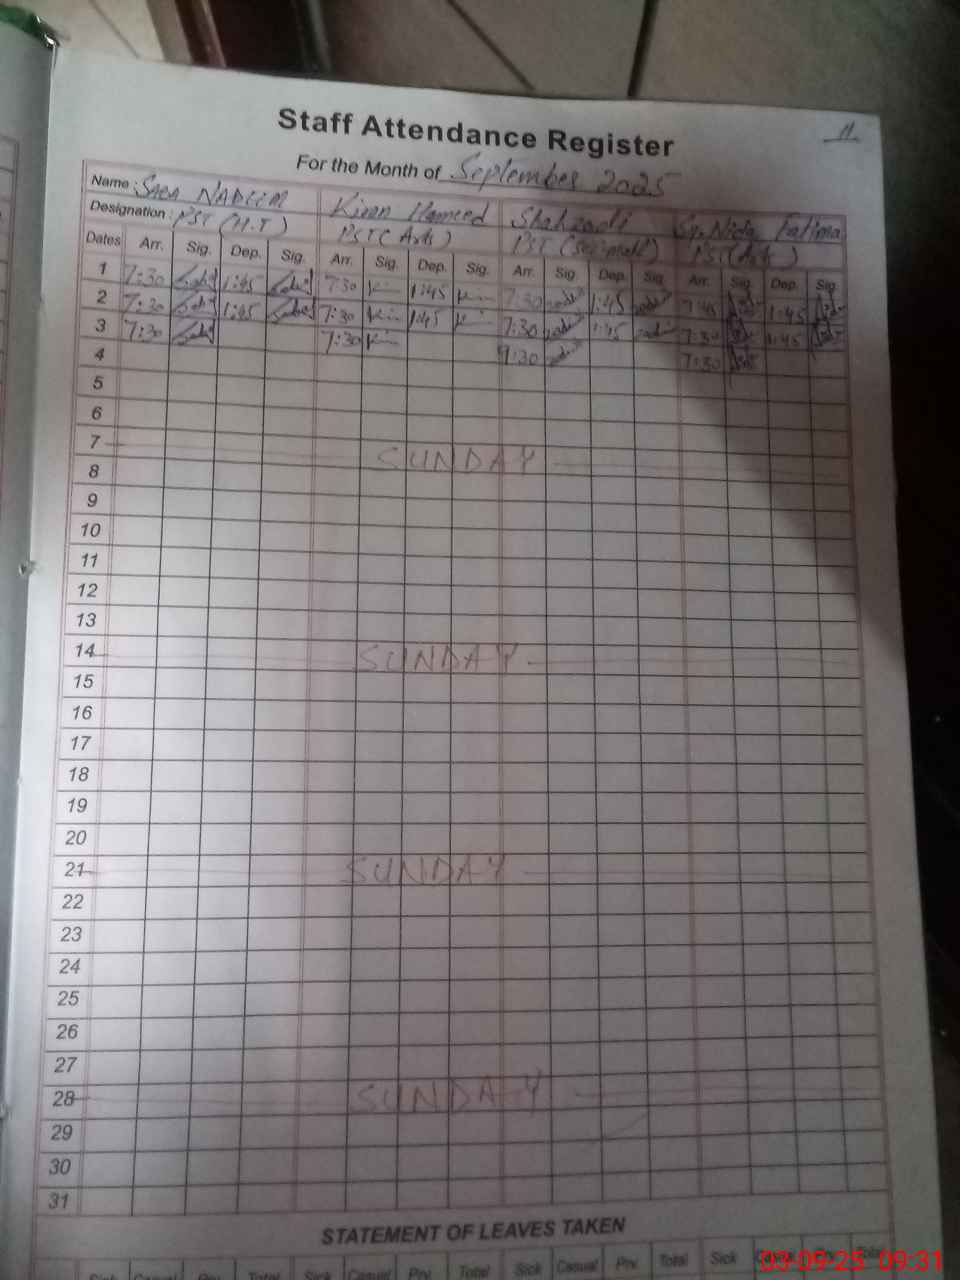 11
Staff Attendance Register
For the Month of September 2025
Name: SABA NADEEM Kiran Hameed Shahzadi Sy. Nida Fatima
Designation: PST (H.T) PST (Arts) PST (Sci-math) PST (Arts)
Dates Arr. Sig. Dep. Sig. Arr. Sig. Dep. Sig. Arr. Sig. Dep. Sig. Arr. Sig. Dep. Sig.
1 7:30 1:45 7:30 1:45 7:30 1:45 7:45 1:45
2 7:30 1:45 7:30 1:45 7:30 1:45 7:30 1:45
3 7:30 7:30 9:30 7:30
4
5
6
7 SUNDAY
8
9
10
11
12
13
14 SUNDAY
15
16
17
18
19
20
21 SUNDAY
22
23
24
25
26
27
28 SUNDAY
29
30
31
STATEMENT OF LEAVES TAKEN
Sick Casual Prv. Total Sick Casual Prv. Total Sick Casual Prv. Total Sick Casual Prv. Total
03-09-25 09:31